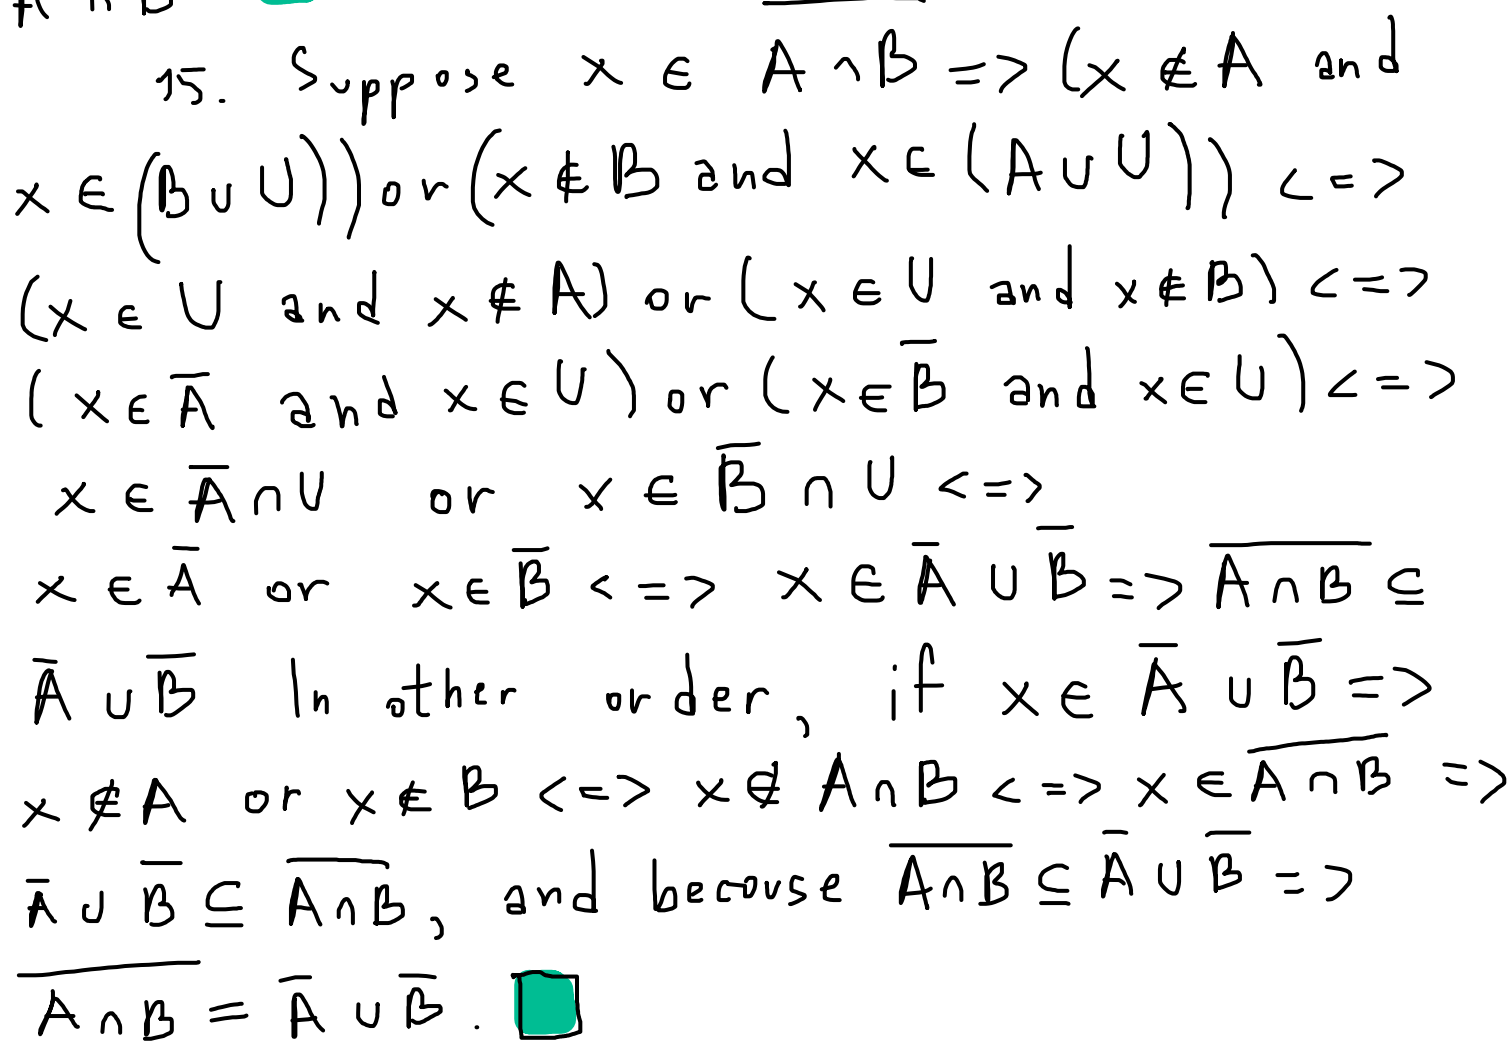 A ∩ B
15. Suppose x ∈ \overline{A ∩ B} => (x ∉ A and
x ∈ (B ∪ U)) or (x ∉ B and x ∈ (A ∪ U)) <=>
(x ∈ U and x ∉ A) or (x ∈ U and x ∉ B) <=>
(x ∈ \overline{A} and x ∈ U) or (x ∈ \overline{B} and x ∈ U) <=>
x ∈ \overline{A} ∩ U or x ∈ \overline{B} ∩ U <=>
x ∈ \overline{A} or x ∈ \overline{B} <=> x ∈ \overline{A} ∪ \overline{B} => \overline{A ∩ B} ⊆
\overline{A} ∪ \overline{B} In other order, if x ∈ \overline{A} ∪ \overline{B} =>
x ∉ A or x ∉ B <=> x ∉ A ∩ B <=> x ∈ \overline{A ∩ B} =>
\overline{A} ∪ \overline{B} ⊆ \overline{A ∩ B}, and becouse \overline{A ∩ B} ⊆ \overline{A} ∪ \overline{B} =>
\overline{A ∩ B} = \overline{A} ∪ \overline{B}.